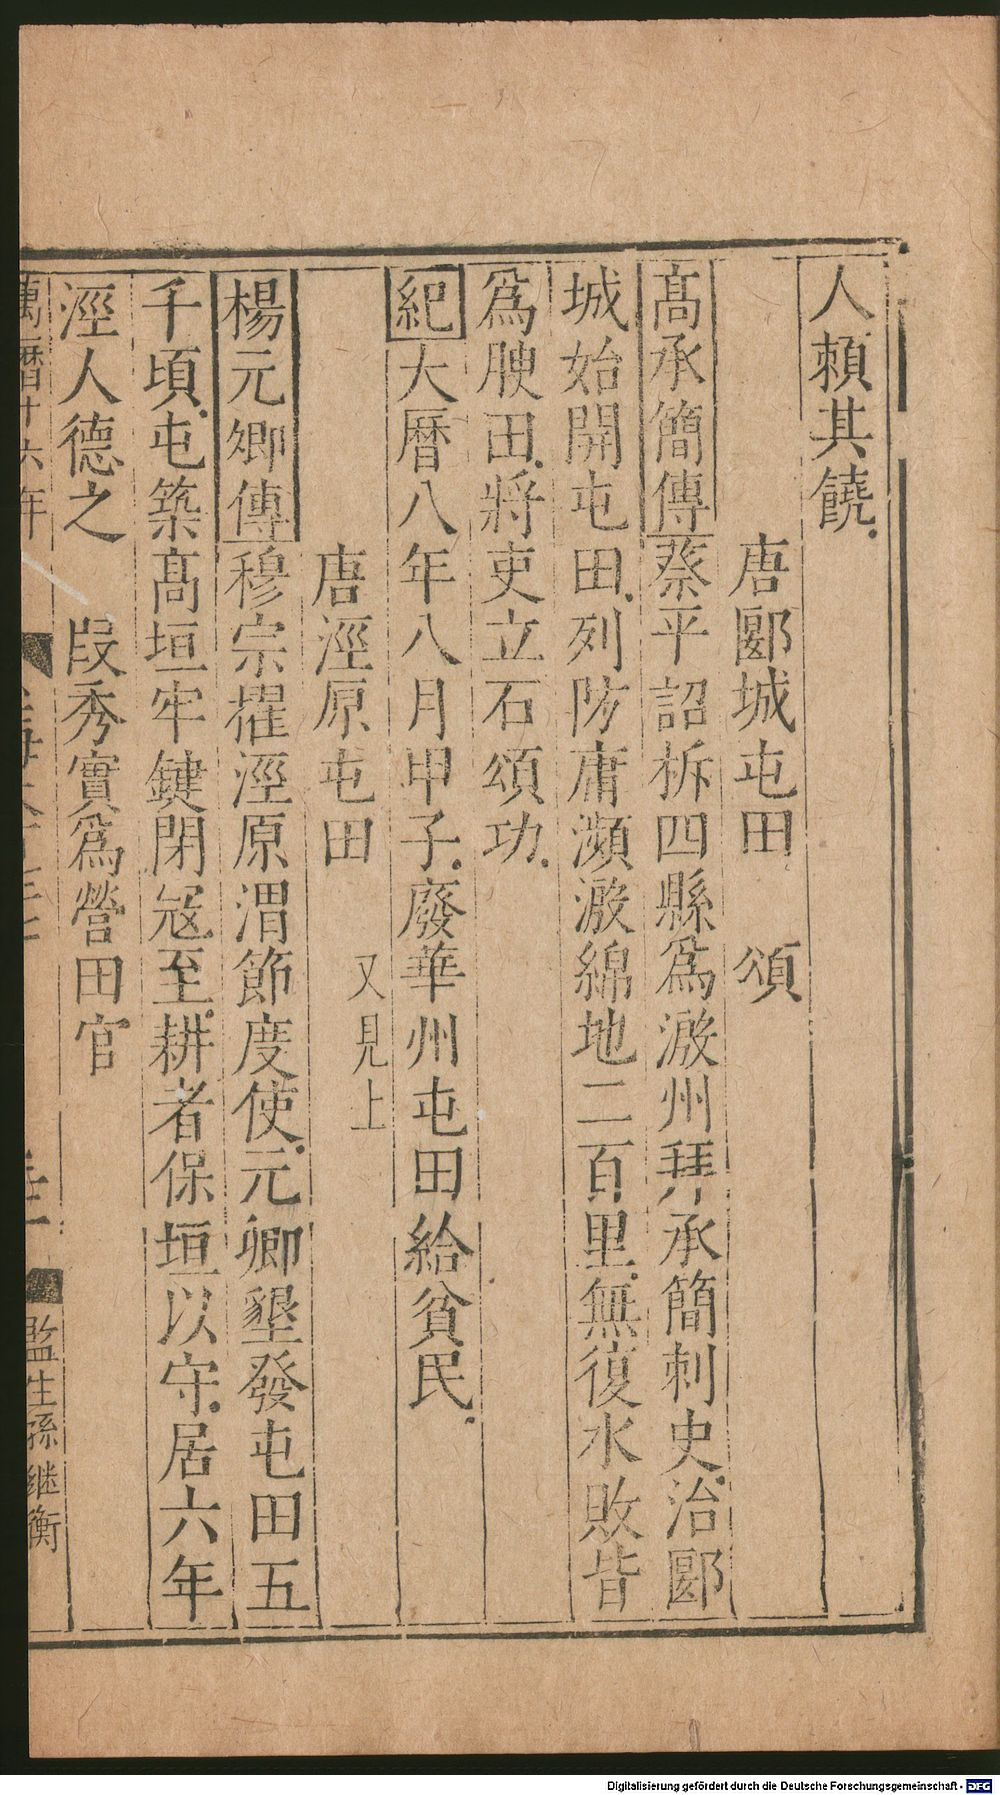 人頼其饒
唐郾城屯田　頌
髙承簡傳蔡平詔析四縣爲溵州拜承簡刺史治郾
城始開屯田列防庸瀕溵綿地二百里無復水敗皆
爲腴田將吏立石頌功
紀大曆八年八月甲子廢華州屯田給貧民
唐涇原屯田　又見上
楊元卿傳穆宗擢涇原渭節度使元卿墾發屯田五
千頃屯築髙垣牢鍵閉冦至耕者保垣以守居六年
涇人德之　段秀實爲營田官
萬曆十六年
監生孫継衡
Digitalisierung gefördert durch die Deutsche Forschungsgemeinschaft - DFG